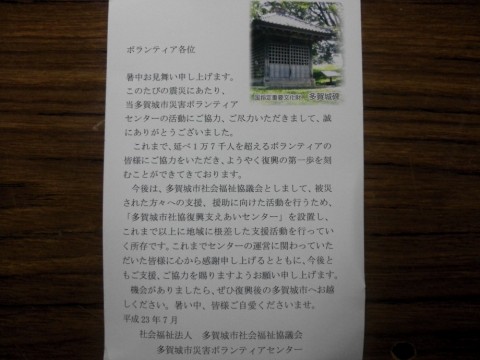 国指定重要文化財 多賀城碑
ボランティア各位
暑中お見舞い申し上げます。
このたびの震災にあたり、
当多賀城市災害ボランティア
センターの活動にご協力、ご尽力いただきまして、誠
にありがとうございました。
これまで、延べ1万7千人を超えるボランティアの
皆様にご協力をいただき、ようやく復興の第一歩を刻
むことができてきております。
今後は、多賀城市社会福祉協議会としまして、被災
された方々への支援、援助に向けた活動を行うため、
「多賀城市社協復興支えあいセンター」を設置し、
これまで以上に地域に根差した支援活動を行ってい
く所存です。これまでセンターの運営に関わっていた
だいた皆様に心から感謝申し上げるとともに、今後と
もご支援、ご協力を賜りますようお願い申し上げます。
機会がありましたら、ぜひ復興後の多賀城市へお越
しください。暑い中、皆様ご自愛くださいませ。
平成23年7月
社会福祉法人 多賀城市社会福祉協議会
多賀城市災害ボランティアセンター